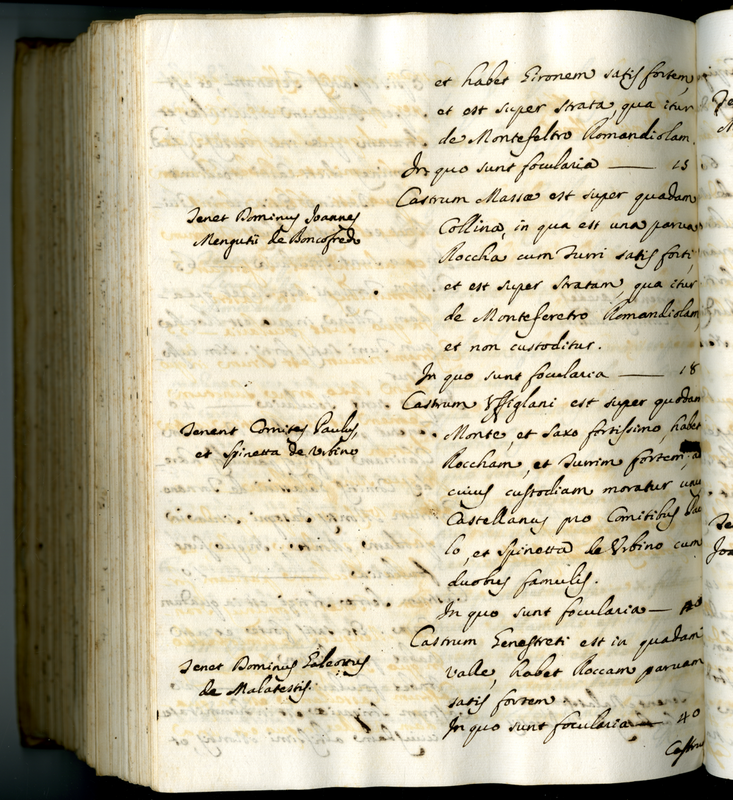 et habet Gironem satis fortem,
et est super strata, qua itur
de Montefeltro Romandiolam.
In quo sunt focularia —— 15
Castrum Massæ est super quadam
Tenet Dominus Joannes
Mengutii de Boncofredo
Collina, in qua est una parva
Roccha cum Turri satis forti,
et est super stratam, qua itur
de Monteferetro Romandiolam,
et non custoditur.
In quo sunt focularia —— 18
Castrum est super quodam
Tenent Comites Paulus,
et Spinetta de Urbino
Monte, et Saxo fortissimo, habet
Roccham, et Turrim fortem, a
cuius custodiam moratur unu
Castellanus pro Comitibus Pau
lo, et Spinetta de Urbino cum
duobus famulis.
In quo sunt focularia —
Castrum Genestreti est in quadam
Tenet Dominus Galeottus
de Malatestis.
valle, habet Roccam parvam
satis fortem
In quo sunt focularia — 40
Castru